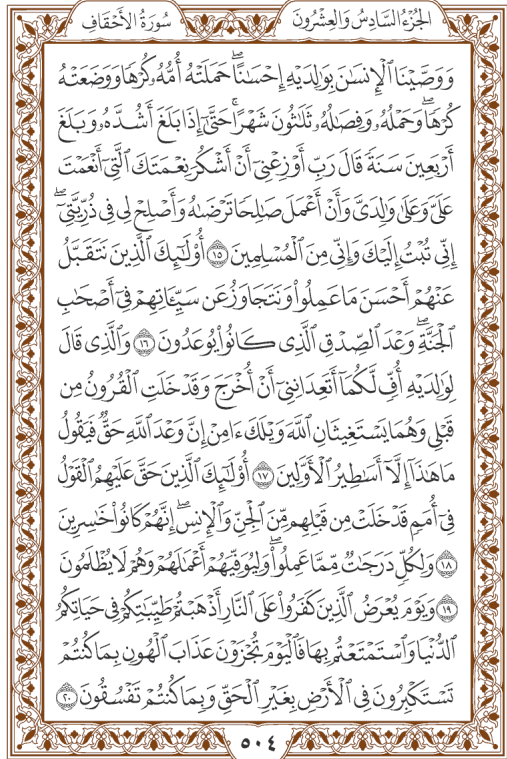 الجزء السادس والعشرون سورة الأحقاف
وَوَصَّيْنَا ٱلْإِنسَٰنَ بِوَٰلِدَيْهِ إِحْسَٰنًاۖ حَمَلَتْهُ أُمُّهُۥ كُرْهًا وَوَضَعَتْهُ
كُرْهًاۖ وَحَمْلُهُۥ وَفِصَٰلُهُۥ ثَلَٰثُونَ شَهْرًاۚ حَتَّىٰٓ إِذَا بَلَغَ أَشُدَّهُۥ وَبَلَغَ
أَرْبَعِينَ سَنَةً قَالَ رَبِّ أَوْزِعْنِىٓ أَنْ أَشْكُرَ نِعْمَتَكَ ٱلَّتِىٓ أَنْعَمْتَ
عَلَىَّ وَعَلَىٰ وَٰلِدَىَّ وَأَنْ أَعْمَلَ صَٰلِحًا تَرْضَىٰهُ وَأَصْلِحْ لِى فِى ذُرِّيَّتِىٓۖ
إِنِّى تُبْتُ إِلَيْكَ وَإِنِّى مِنَ ٱلْمُسْلِمِينَ ١٥ أُو۟لَٰٓئِكَ ٱلَّذِينَ نَتَقَبَّلُ
عَنْهُمْ أَحْسَنَ مَا عَمِلُوا۟ وَنَتَجَاوَزُ عَن سَيِّـَٔاتِهِمْ فِىٓ أَصْحَٰبِ
ٱلْجَنَّةِۖ وَعْدَ ٱلصِّدْقِ ٱلَّذِى كَانُوا۟ يُوعَدُونَ ١٦ وَٱلَّذِى قَالَ
لِوَٰلِدَيْهِ أُفٍّ لَّكُمَآ أَتَعِدَانِنِىٓ أَنْ أُخْرَجَ وَقَدْ خَلَتِ ٱلْقُرُونُ مِن
قَبْلِى وَهُمَا يَسْتَغِيثَانِ ٱللَّهَ وَيْلَكَ ءَامِنْ إِنَّ وَعْدَ ٱللَّهِ حَقٌّ فَيَقُولُ
مَا هَٰذَآ إِلَّآ أَسَٰطِيرُ ٱلْأَوَّلِينَ ١٧ أُو۟لَٰٓئِكَ ٱلَّذِينَ حَقَّ عَلَيْهِمُ ٱلْقَوْلُ
فِىٓ أُمَمٍ قَدْ خَلَتْ مِن قَبْلِهِم مِّنَ ٱلْجِنِّ وَٱلْإِنسِۖ إِنَّهُمْ كَانُوا۟ خَٰسِرِينَ
١٨ وَلِكُلٍّ دَرَجَٰتٌ مِّمَّا عَمِلُوا۟ۖ وَلِيُوَفِّيَهُمْ أَعْمَٰلَهُمْ وَهُمْ لَا يُظْلَمُونَ
١٩ وَيَوْمَ يُعْرَضُ ٱلَّذِينَ كَفَرُوا۟ عَلَى ٱلنَّارِ أَذْهَبْتُمْ طَيِّبَٰتِكُمْ فِى حَيَاتِكُمُ
ٱلدُّنْيَا وَٱسْتَمْتَعْتُم بِهَا فَٱلْيَوْمَ تُجْزَوْنَ عَذَابَ ٱلْهُونِ بِمَا كُنتُمْ
تَسْتَكْبِرُونَ فِى ٱلْأَرْضِ بِغَيْرِ ٱلْحَقِّ وَبِمَا كُنتُمْ تَفْسُقُونَ ٢٠
٥٠٤